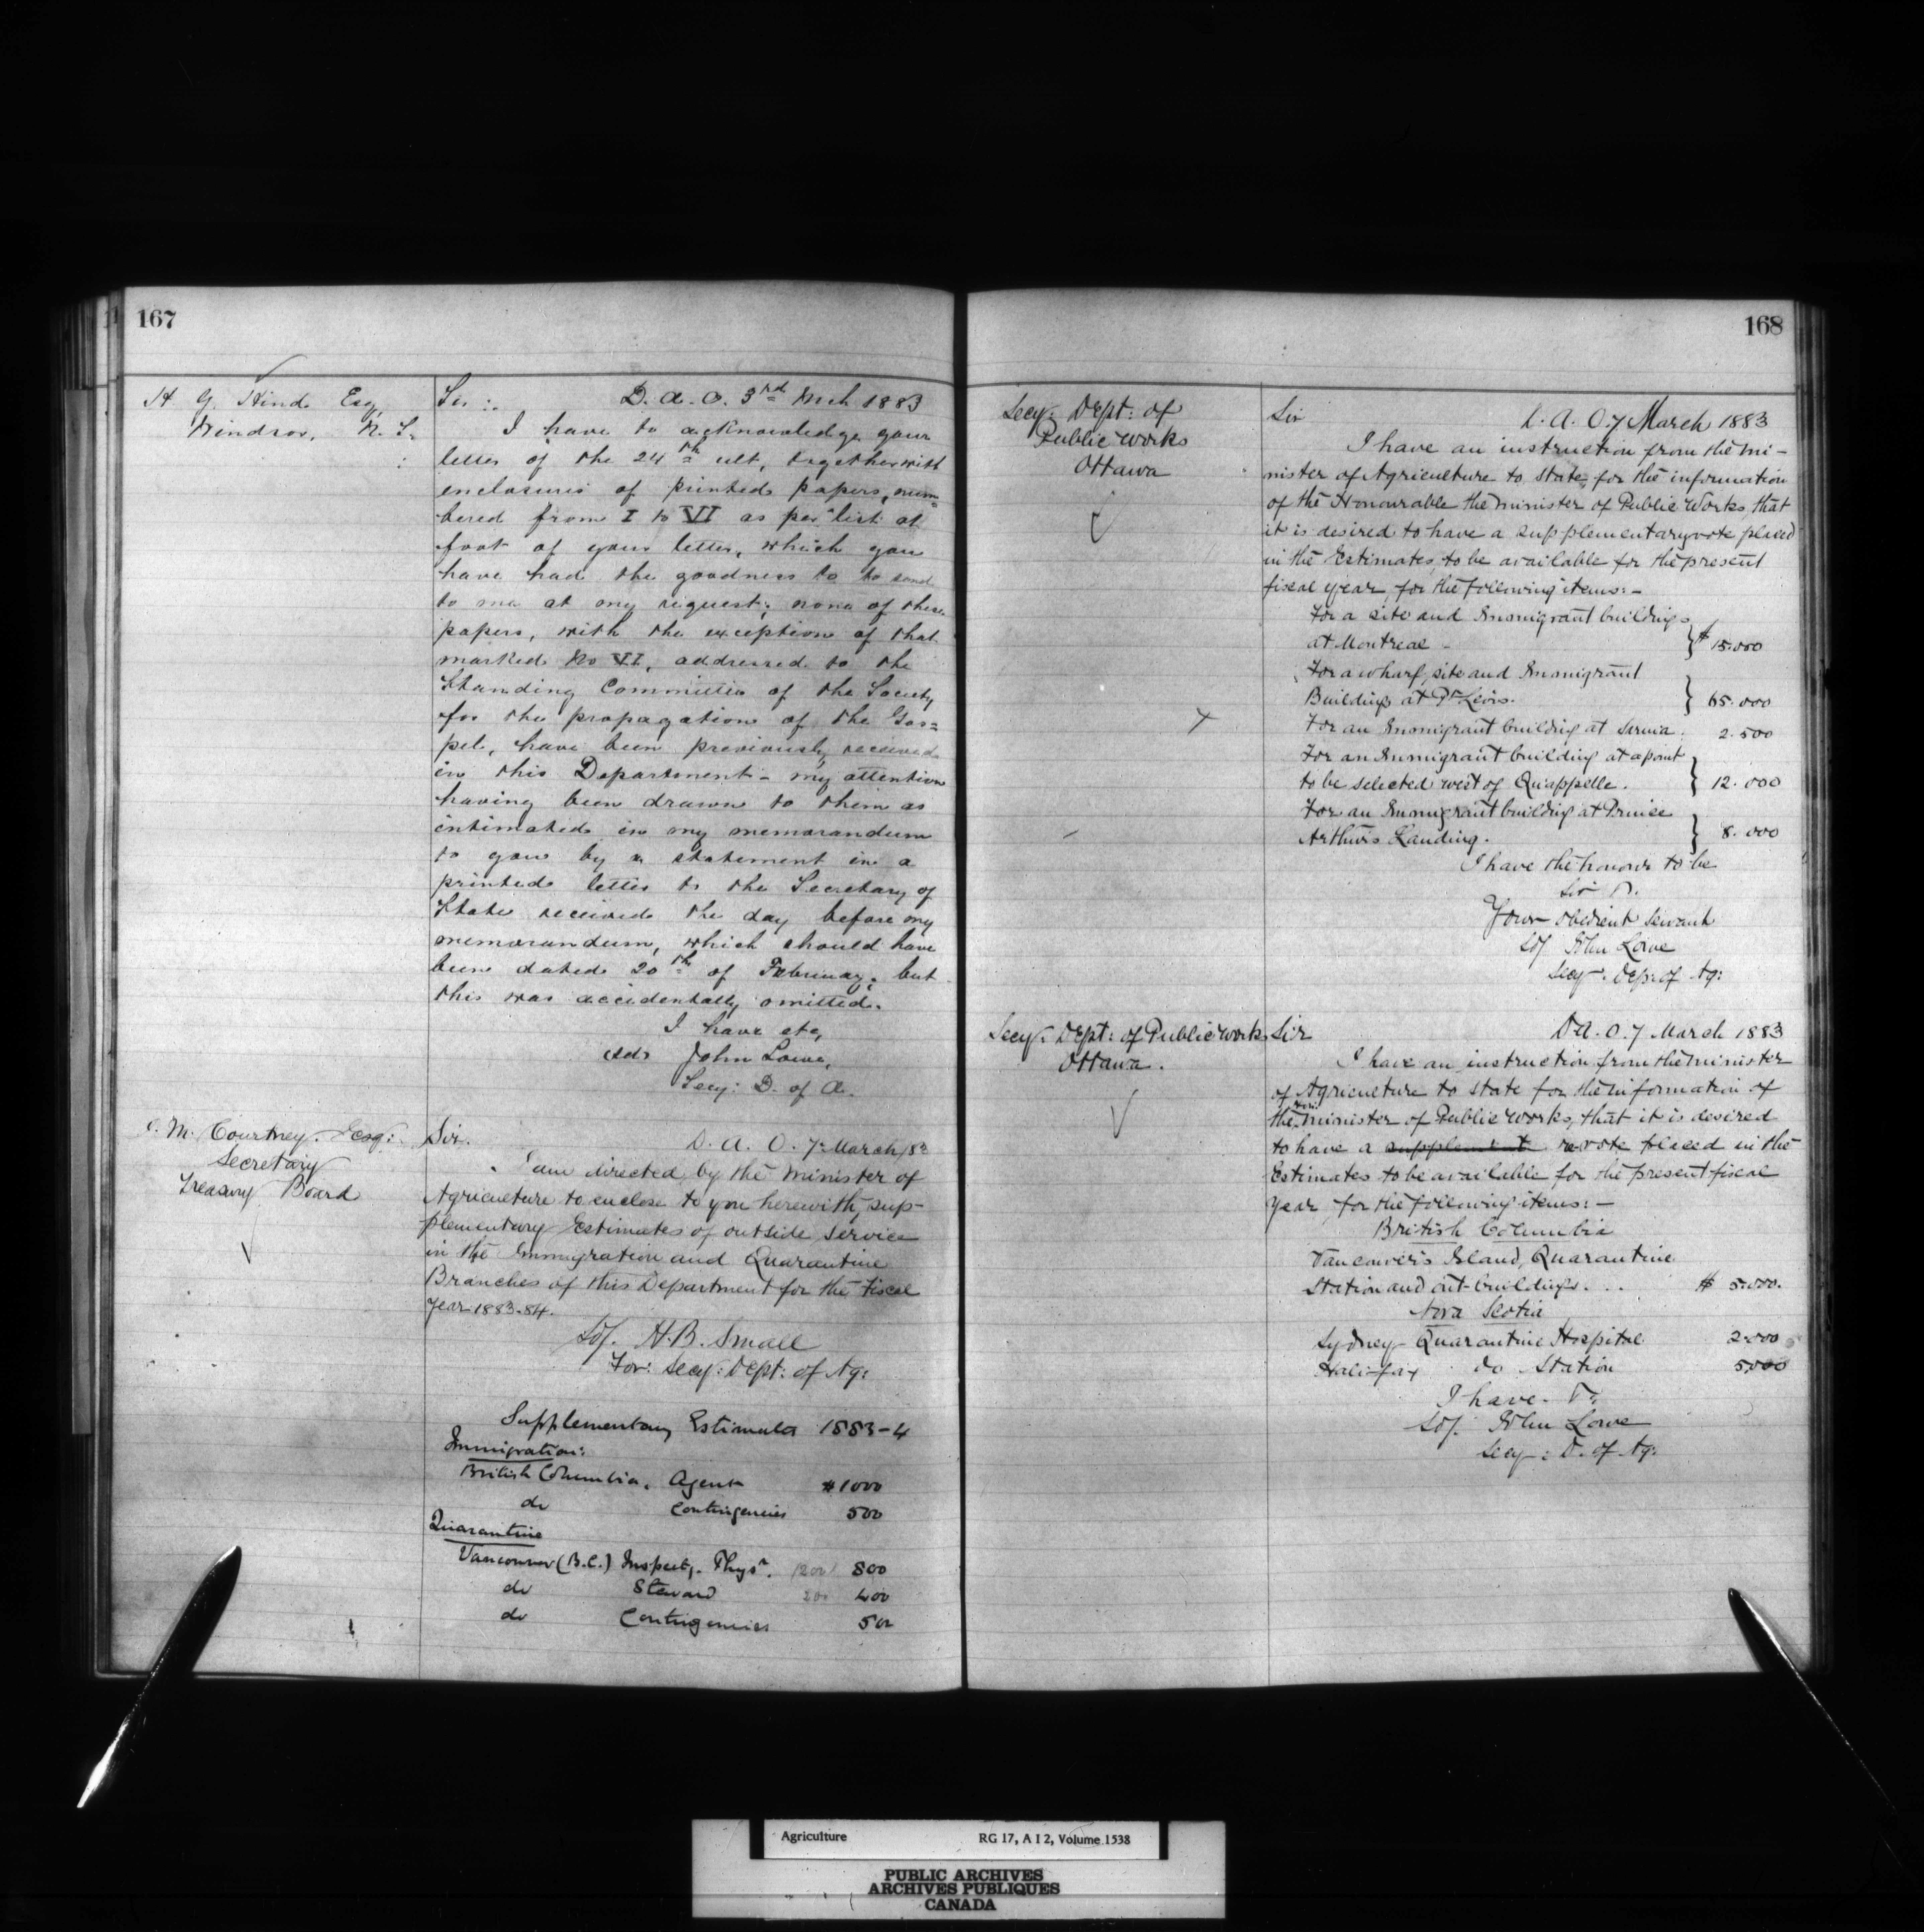 167
H Y Hind Esq
Windsor, N. S.
Sir :. D. A. O. 3rd Mch 1883
I have to acknowledge your
letter of the 24th ult, together with
enclosures of printed papers, num=
bered from I to VI as per list at
foot of your letter, which you
have had the goodness to to send
to me at my request; none of these
papers, with the exception of that
marked No VI, addressed to the
Standing Committee of the Society
for the propagation of the Gos=
pel, have been previously received
in this Department - my attention
having been drawn to them as
intimated in my memorandum
to you by a statement in a
printed letter to the Secretary of
State received the day before my
memorandum, which should have
been dated 20th of February; but
this was accidentally omitted.
I have etc,
sd. John Lowe,
Secy: D. of A.
C. M. Courtney. Esq:
Secretary
Treasury Board
Sir. D. A. O. 7 March/83
I am directed by the Minister of
Agriculture to enclose to you herewith, sup-
plementary Estimates of outside service
in the Immigration and Quarantine
Branches of this Department for the Fiscal
Year 1883-84.
Sd/. H. B. Small
For: Secy: Dept: of Ag:
Supplementary Estimates 1883-4
Immigration:
British Columbia, Agent #1000
do Contingencies 500
Quarantine
Vancouver (B.C.) Inspectg. Physn. 1200 800
do Steward 200 400
do Contingencies 500
168
Secy: Dept: of
Public Works
Ottawa
Sir D. A. O. 7 March 1883
I have an instruction from the Mi-
nister of Agriculture to state, for the information
of the Honourable the Minister of Public Works, that
it is desired to have a supplementary vote placed
in the Estimates, to be available for the present
fiscal year, for the following items:-
For a site and Immigrant buildings
at Montreal - } $ 15.000
For a wharf, site and Immigrant
Buildings at Pt Levis. } 65.000
For an Immigrant building at Sarnia: 2.500
For an Immigrant building at a point
to be selected west of Quappelle. } 12.000
For an Immigrant building at Prince
Arthurs Landing. } 8.000
I have the honour to be
Sir
Your obedient servant
Sd/ John Lowe
Secy. Dep: of Ag:
Secy. Dept: of Public Works
Ottawa.
Sir D A. O. 7 March 1883
I have an instruction from the Minister
of Agriculture to state for the information of
the Hon: Minister of Public Works, that it is desired
to have a supplement revote placed in the
Estimates to be available for the present fiscal
year, for the following items:-
British Columbia
Vancouver's Island, Quarantine
Station and out-buildings. . . $ 5.000.
Nova Scotia
Sydney Quarantine Hospital 2.000
Halifax do Station 5.000
I have.
Sd/. John Lowe
Secy: D. of Ag:
Agriculture RG 17, A I 2, Volume 1538
PUBLIC ARCHIVES
ARCHIVES PUBLIQUES
CANADA